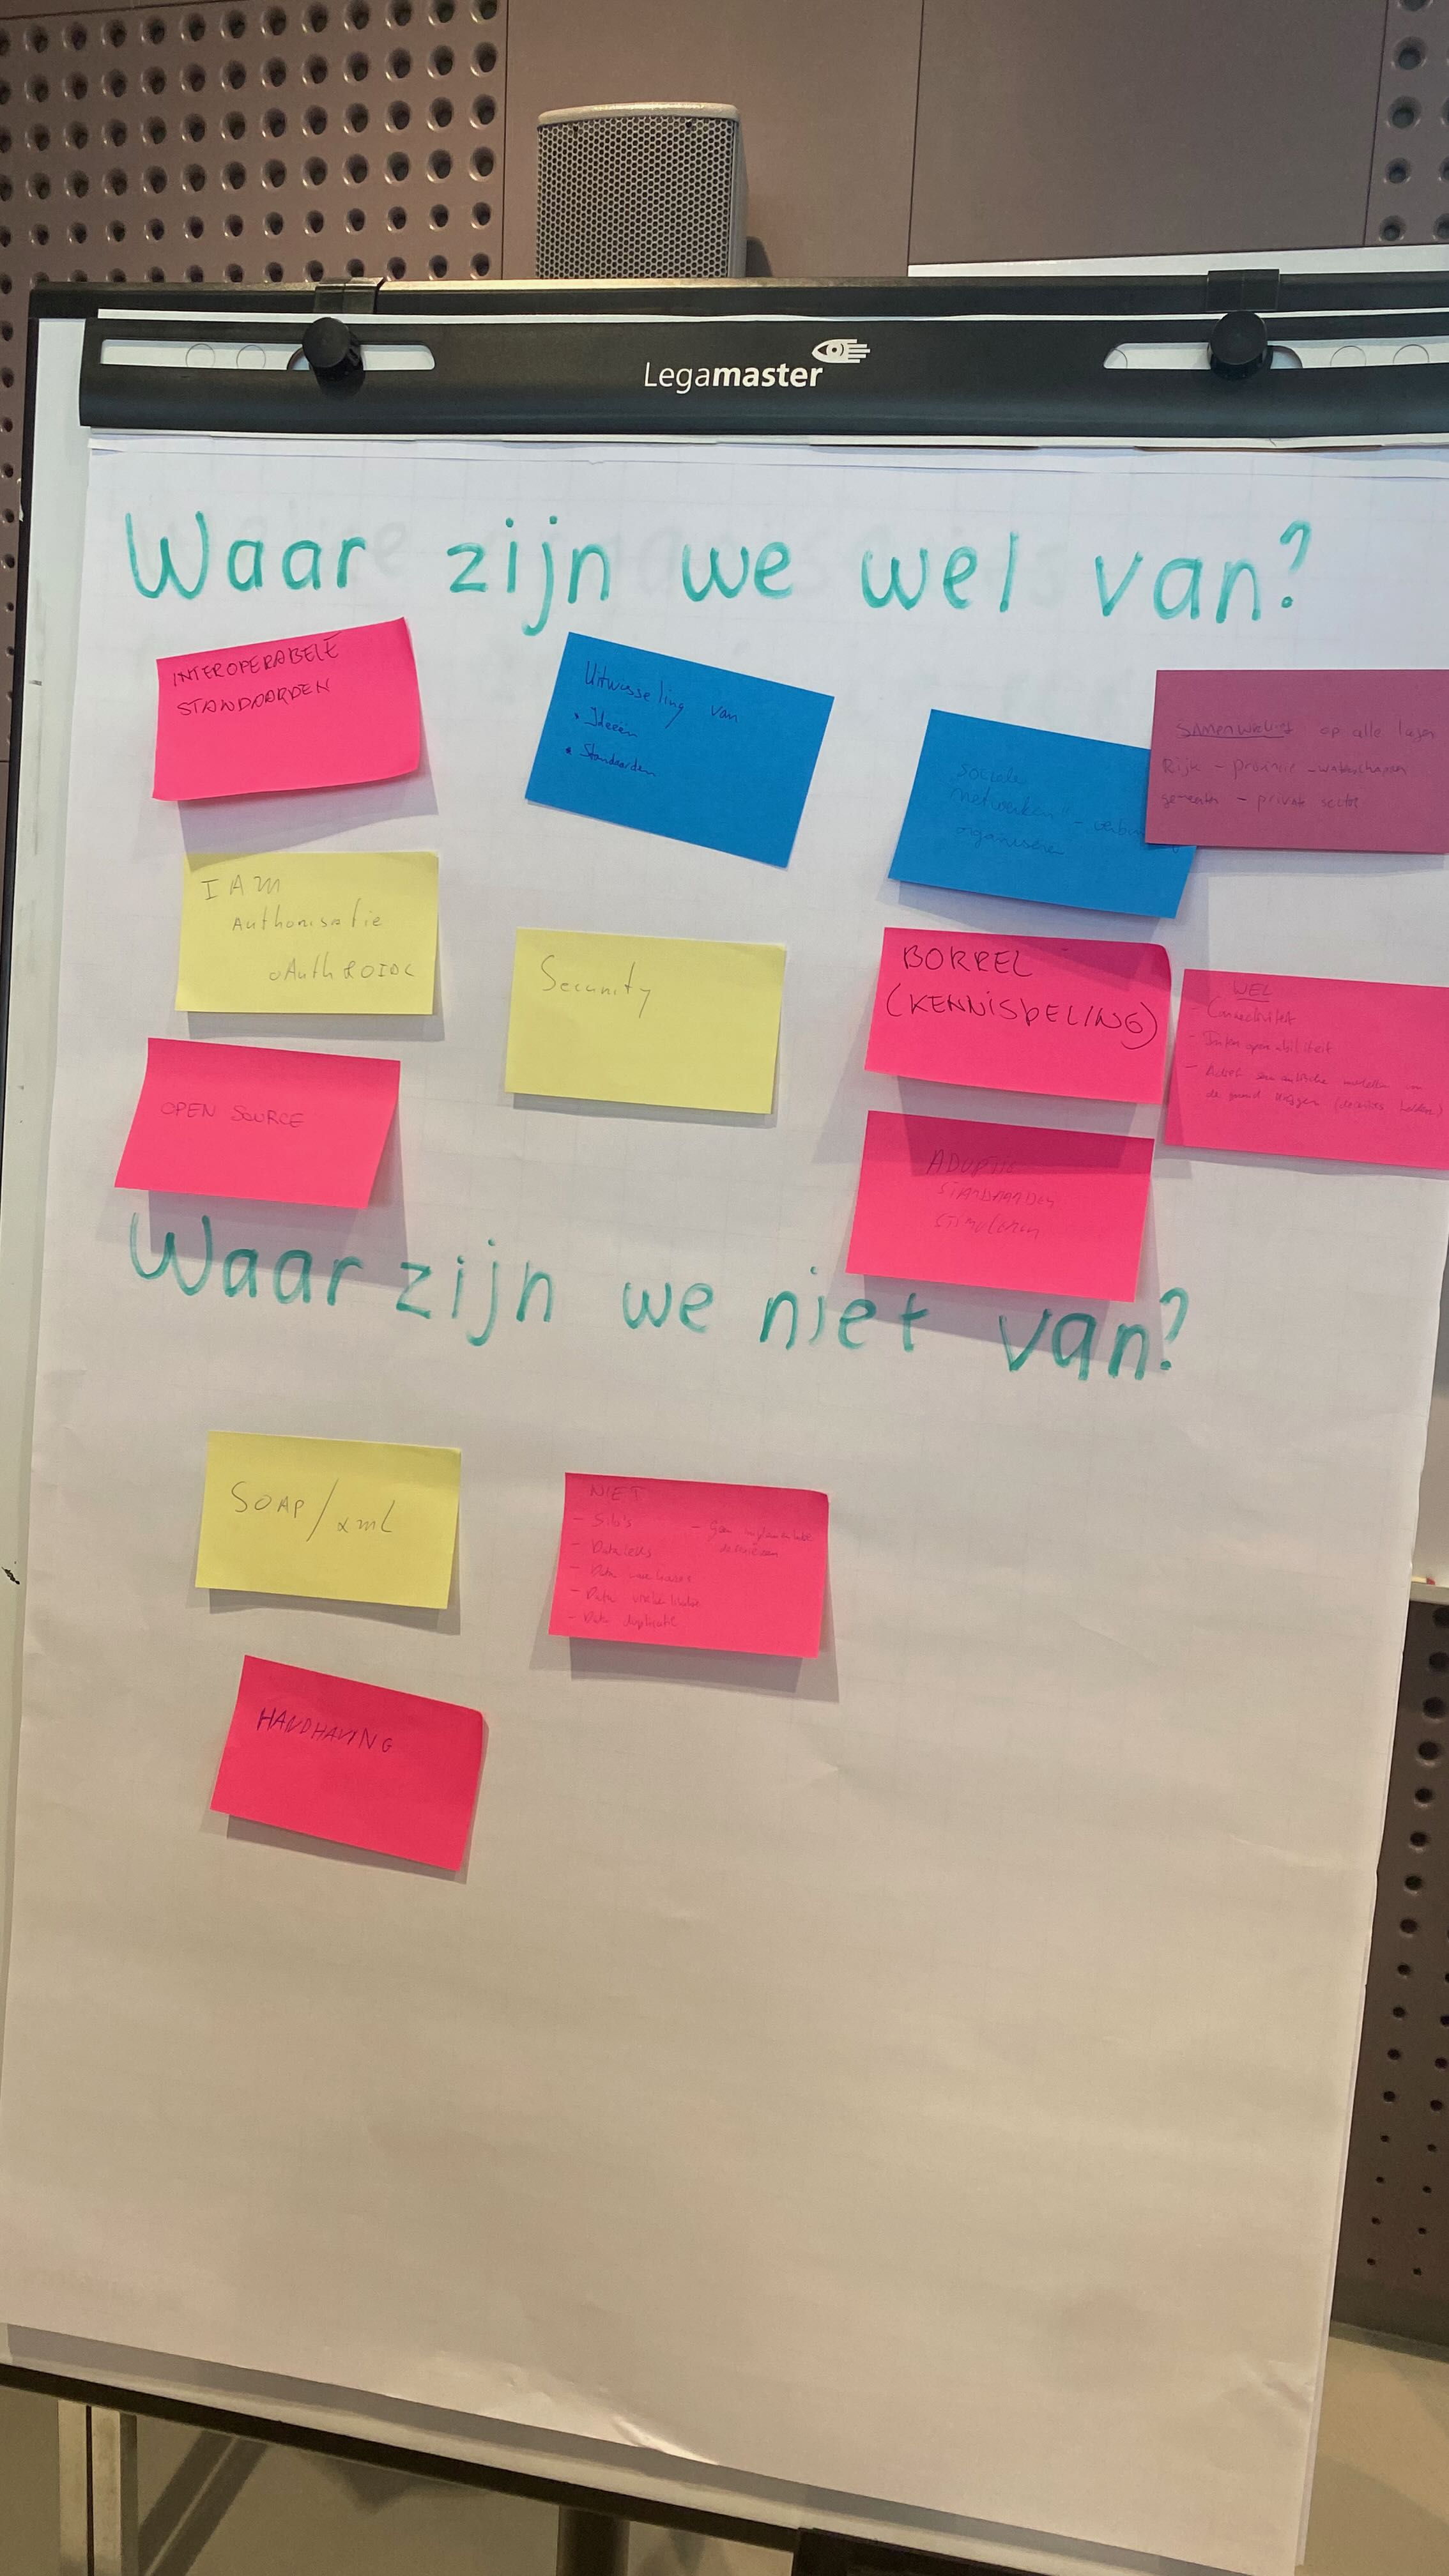 Legamaster
Waar zijn we wel van?
INTEROPERABELE
STANDAARDEN
Uitwisseling van
• Ideeën
• Standaarden
Sociale
netwerken -
organiseren
Samenwerking op alle lagen
Rijk - provincie - waterschappen
gemeenten - private sector
IAM
Authorisatie
OAuth & OIDC
Security
BORREL
(KENNISDELING)
WEL
- Connectiviteit
- Interoperabiliteit
- Actief semantische modellen
de
OPEN SOURCE
ADOPTIE
STANDAARDEN
STIMULEREN
Waar zijn we niet van?
SOAP/xml
NIET
- Silo's
- Dataleks
- Data
- Data
- Data duplicatie
- Geen
HANDHAVING